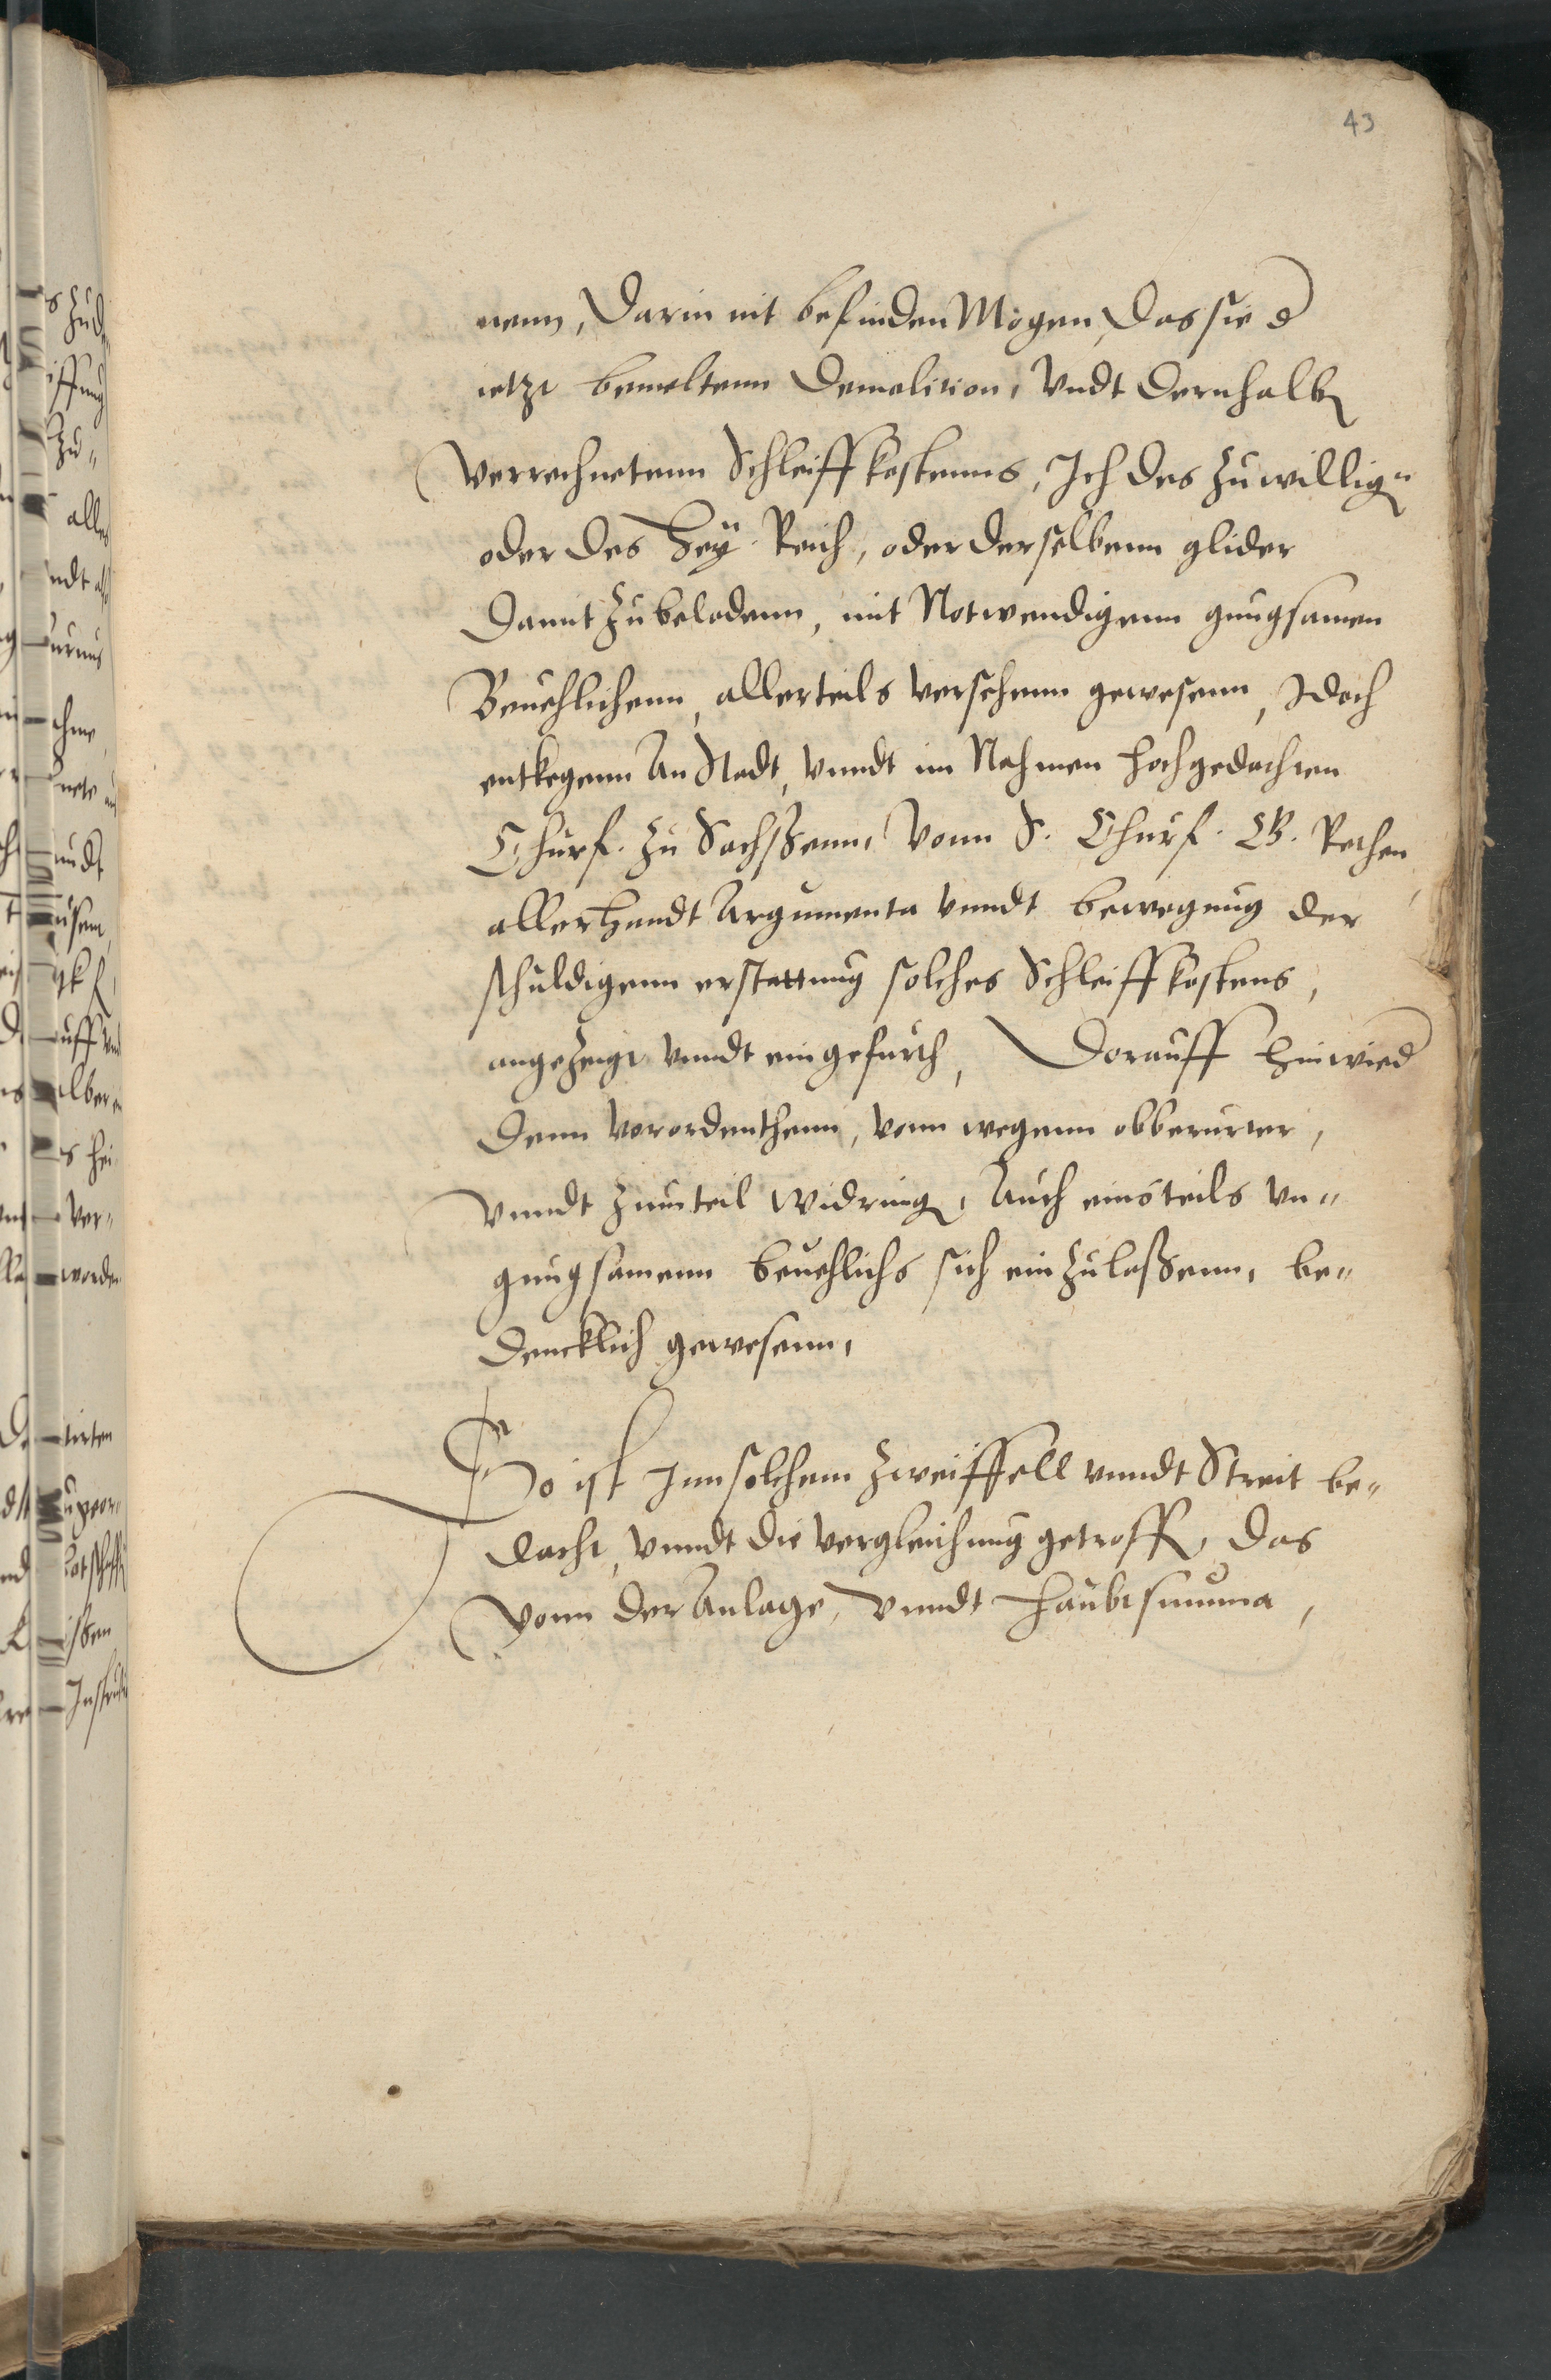 43
nenn, Darin nit befinden Mögen, Das sie d
ietzt bemeltenn Demolition, Vndt Dernhalb
verrechnetenn Schleiffkostenns, Ich des zu willig
oder des Hey. Reich, oder derselbenn glider
Damit zubeladenn, mit Notwendigenn gnugsamen
Beuehlichenn, allerteils versehenn gewesenn, Idoch
entkegenn An Stadt, vnndt im Nahmen hochgedachten
Churf. zu Sachssenn, Vonn S. Churf. G. Rethen
allerhandt Argumenta vnndt bewegnug der
schuldigenn erstattnug solches Schleiffkostens,
angezeigt vnndt eingefurth, Dorauff hinwied
Denn verordenthenn, vonn wegenn obberurter,
vnndt zumteil widring, Auch einsteils vn=
gnugsamenn beuehlichs sich einzulassenn, be=
dencklich gewesenn,
So ist Inn solchem Zweiffell vnndt Streit be=
dacht, vnndt die vergleichung getroff, das
vonn der Anlage, vnndt haubtsumma,